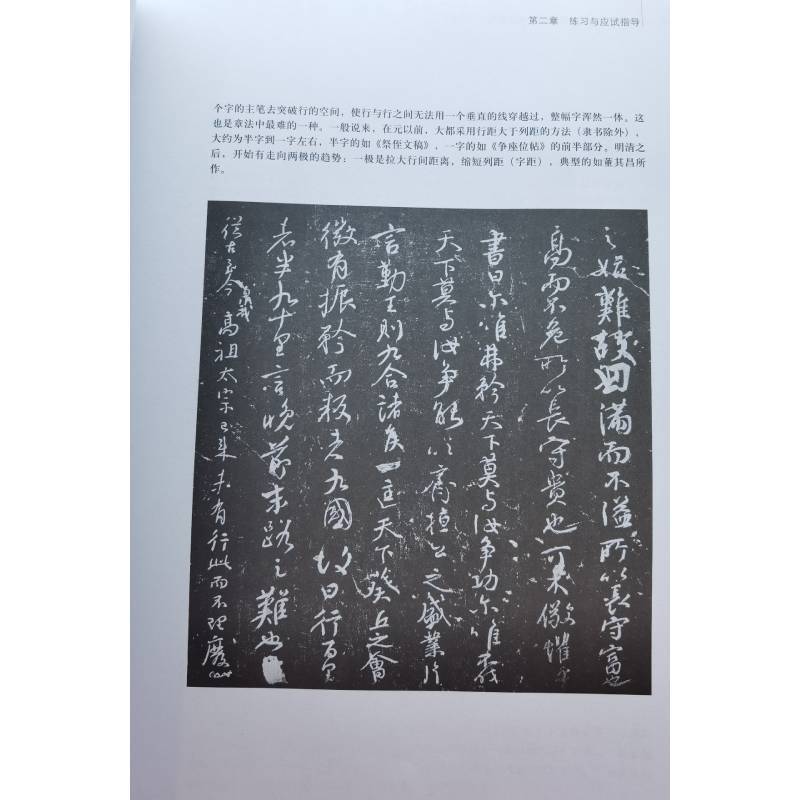 第二章 练习与应试指导
个字的主笔去突破行的空间，使行与行之间无法用一个垂直的线穿越过，整幅字浑然一体。这
也是章法中最难的一种。一般说来，在元以前，大都采用行距大于列距的方法（隶书除外），
大约为半字到一字左右，半字的如《祭侄文稿》，一字的如《争座位帖》的前半部分。明清之
后，开始有走向两极的趋势：一极是拉大行间距离，缩短列距（字距），典型的如董其昌所
作。
之始難故曰满而不溢所以長守富也
高而不危所以長守贵也可不儆懼乎
書曰尔唯弗矜天下莫与汝争功尔唯不伐
天下莫与汝争能以齊桓公之盛業片
言勤王則九合諸侯一匡天下葵丘之會
微有振矜而叛者九國故曰行百里
者半九十里言晚節末路之難也
從古至今高祖太宗已来未有行此而不理廢